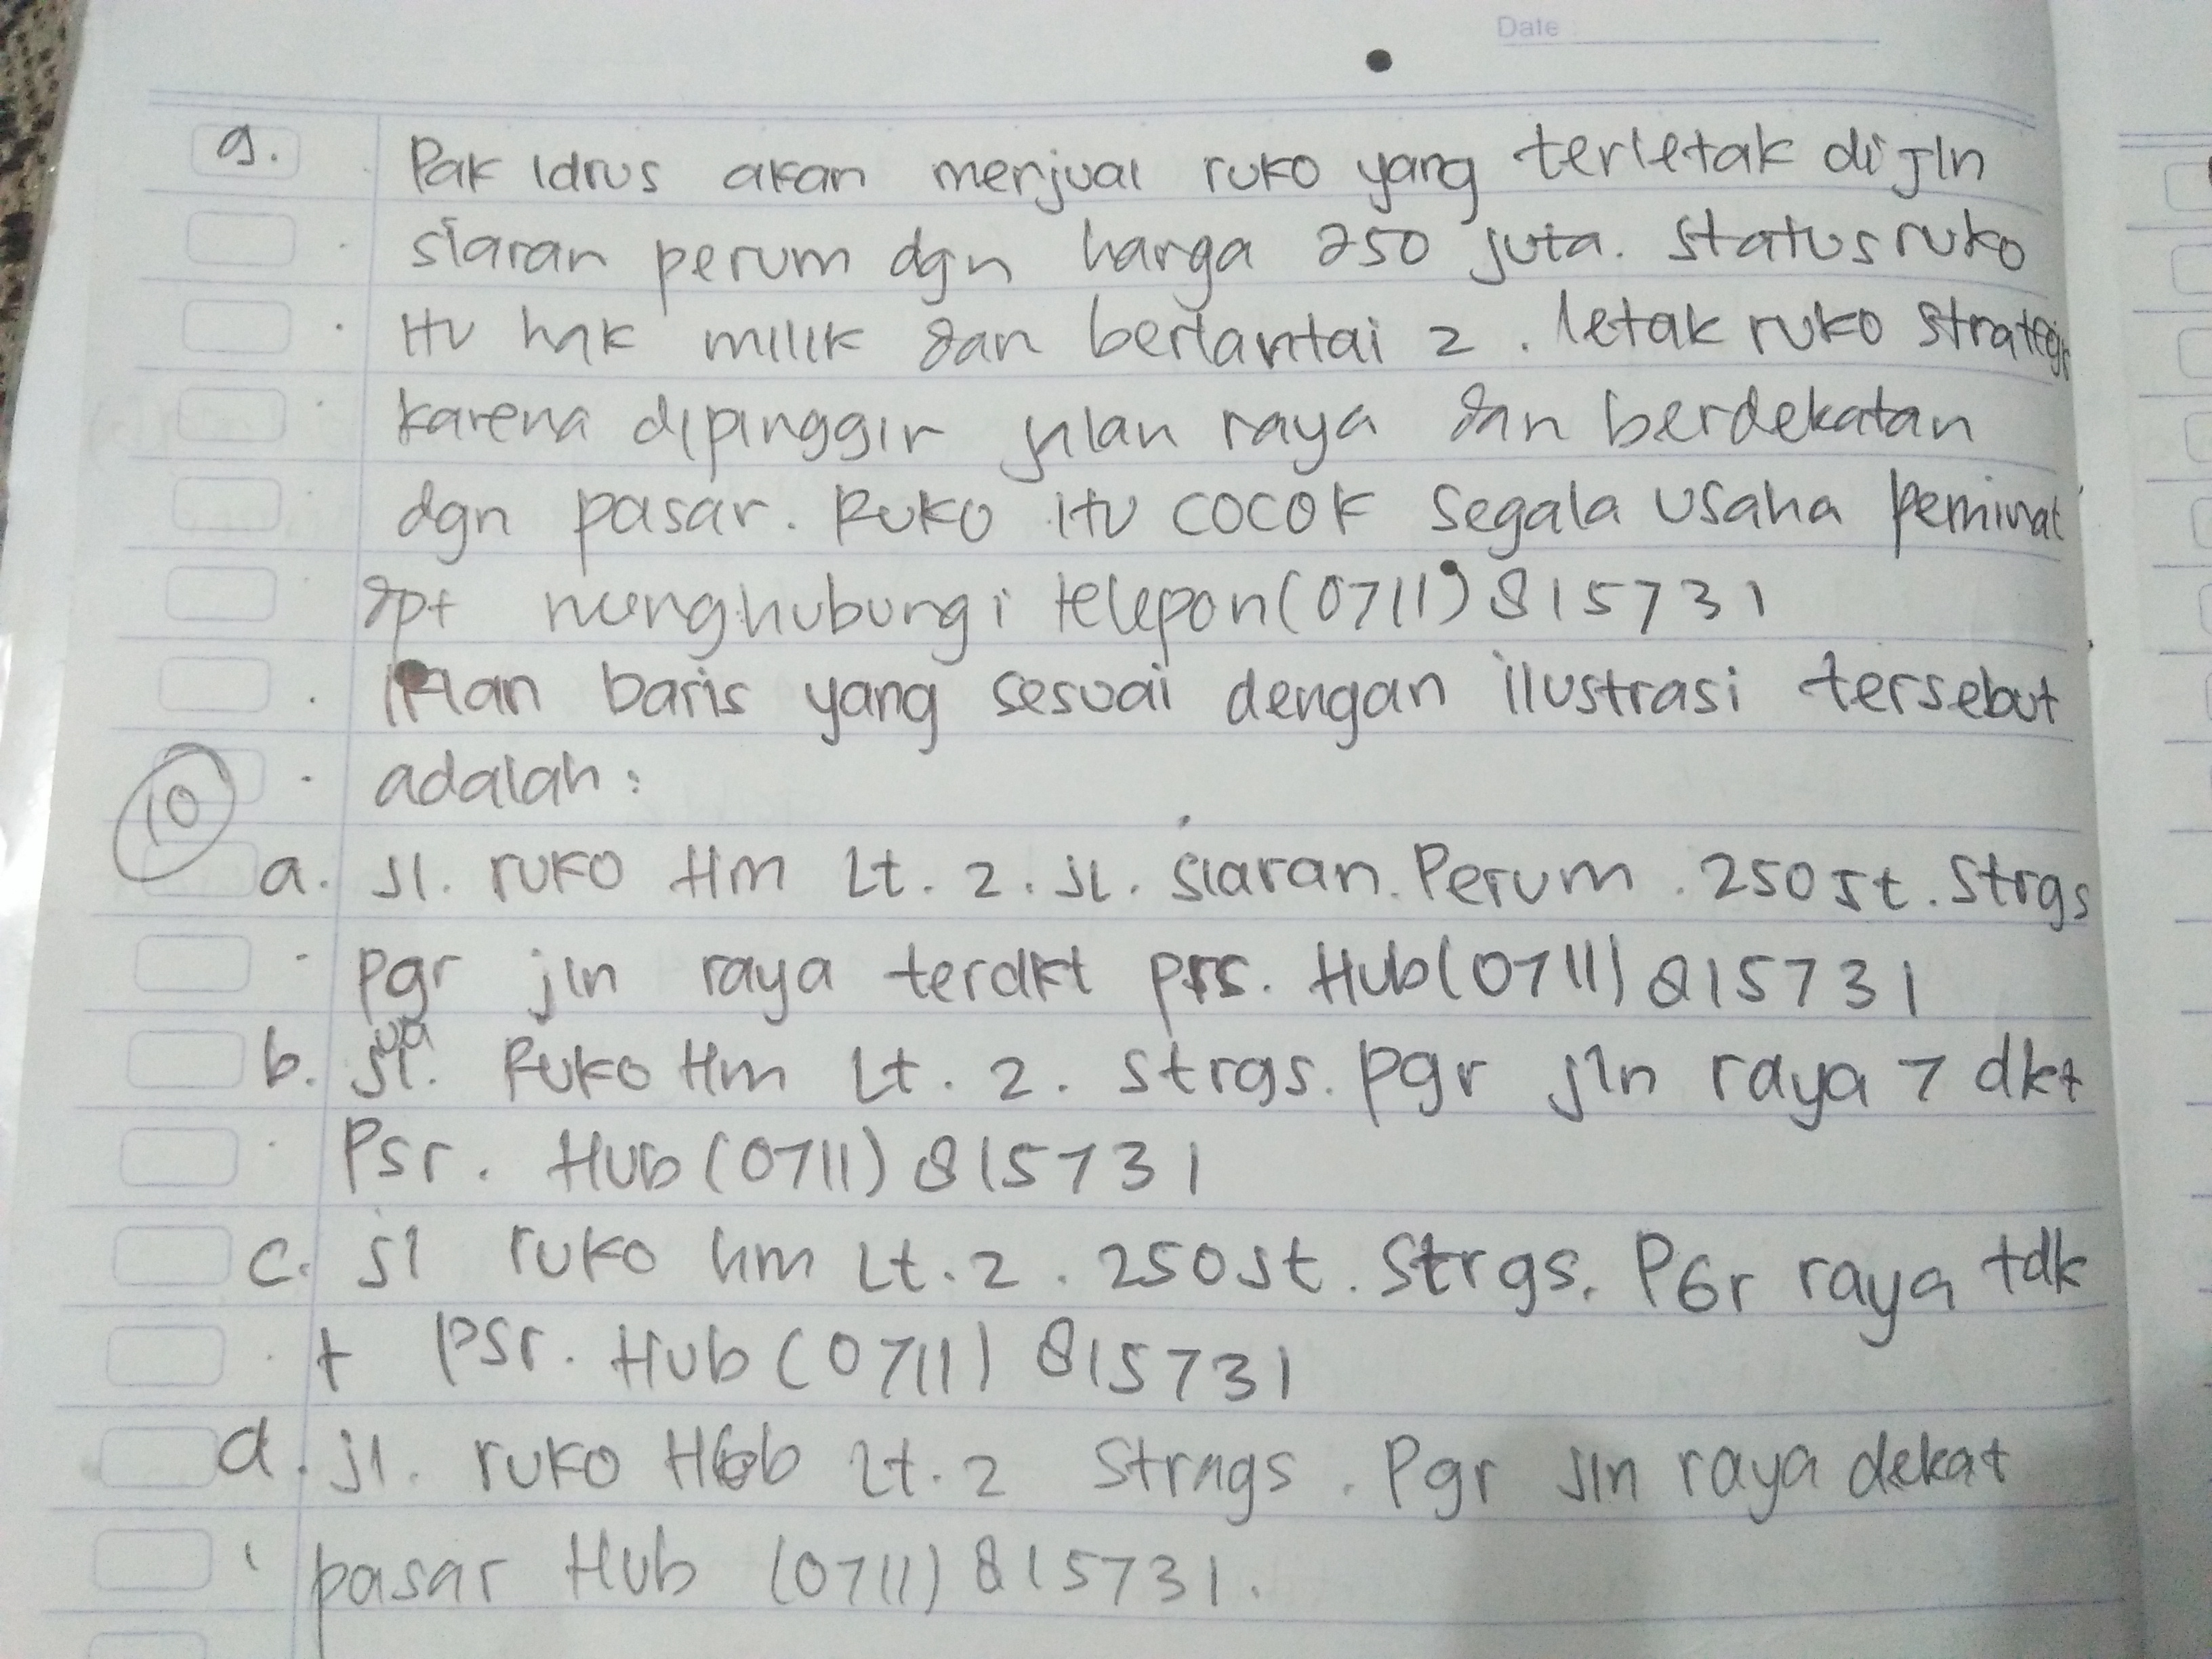 Date
9. Pak Idrus akan menjual ruko yang terletak di jln
siaran perum dgn harga 250 juta. Status ruko
itu hak milik dan berlantai 2. letak ruko strategis
karena dipinggir jalan raya dan berdekatan
dgn pasar. Ruko itu cocok segala usaha peminat
dpt menghubungi telepon (0711) 815731
iklan baris yang sesuai dengan ilustrasi tersebut
10 adalah:
a. Jl. ruko Hm Lt. 2. JL. siaran. Perum. 250 Jt. Strgs
pgr jln raya terdkt prs. Hub (0711) 815731
b. Jl. Ruko Hm Lt. 2. strgs. pgr jln raya T dkt
Psr. Hub (0711) 815731
c. Jl ruko hm Lt. 2. 250 Jt. Strgs. PGr raya tdk
t psr. Hub (0711) 815731
d. jl. ruko Lt. 2 Strngs. Pgr jln raya dekat
pasar Hub (0711) 815731.